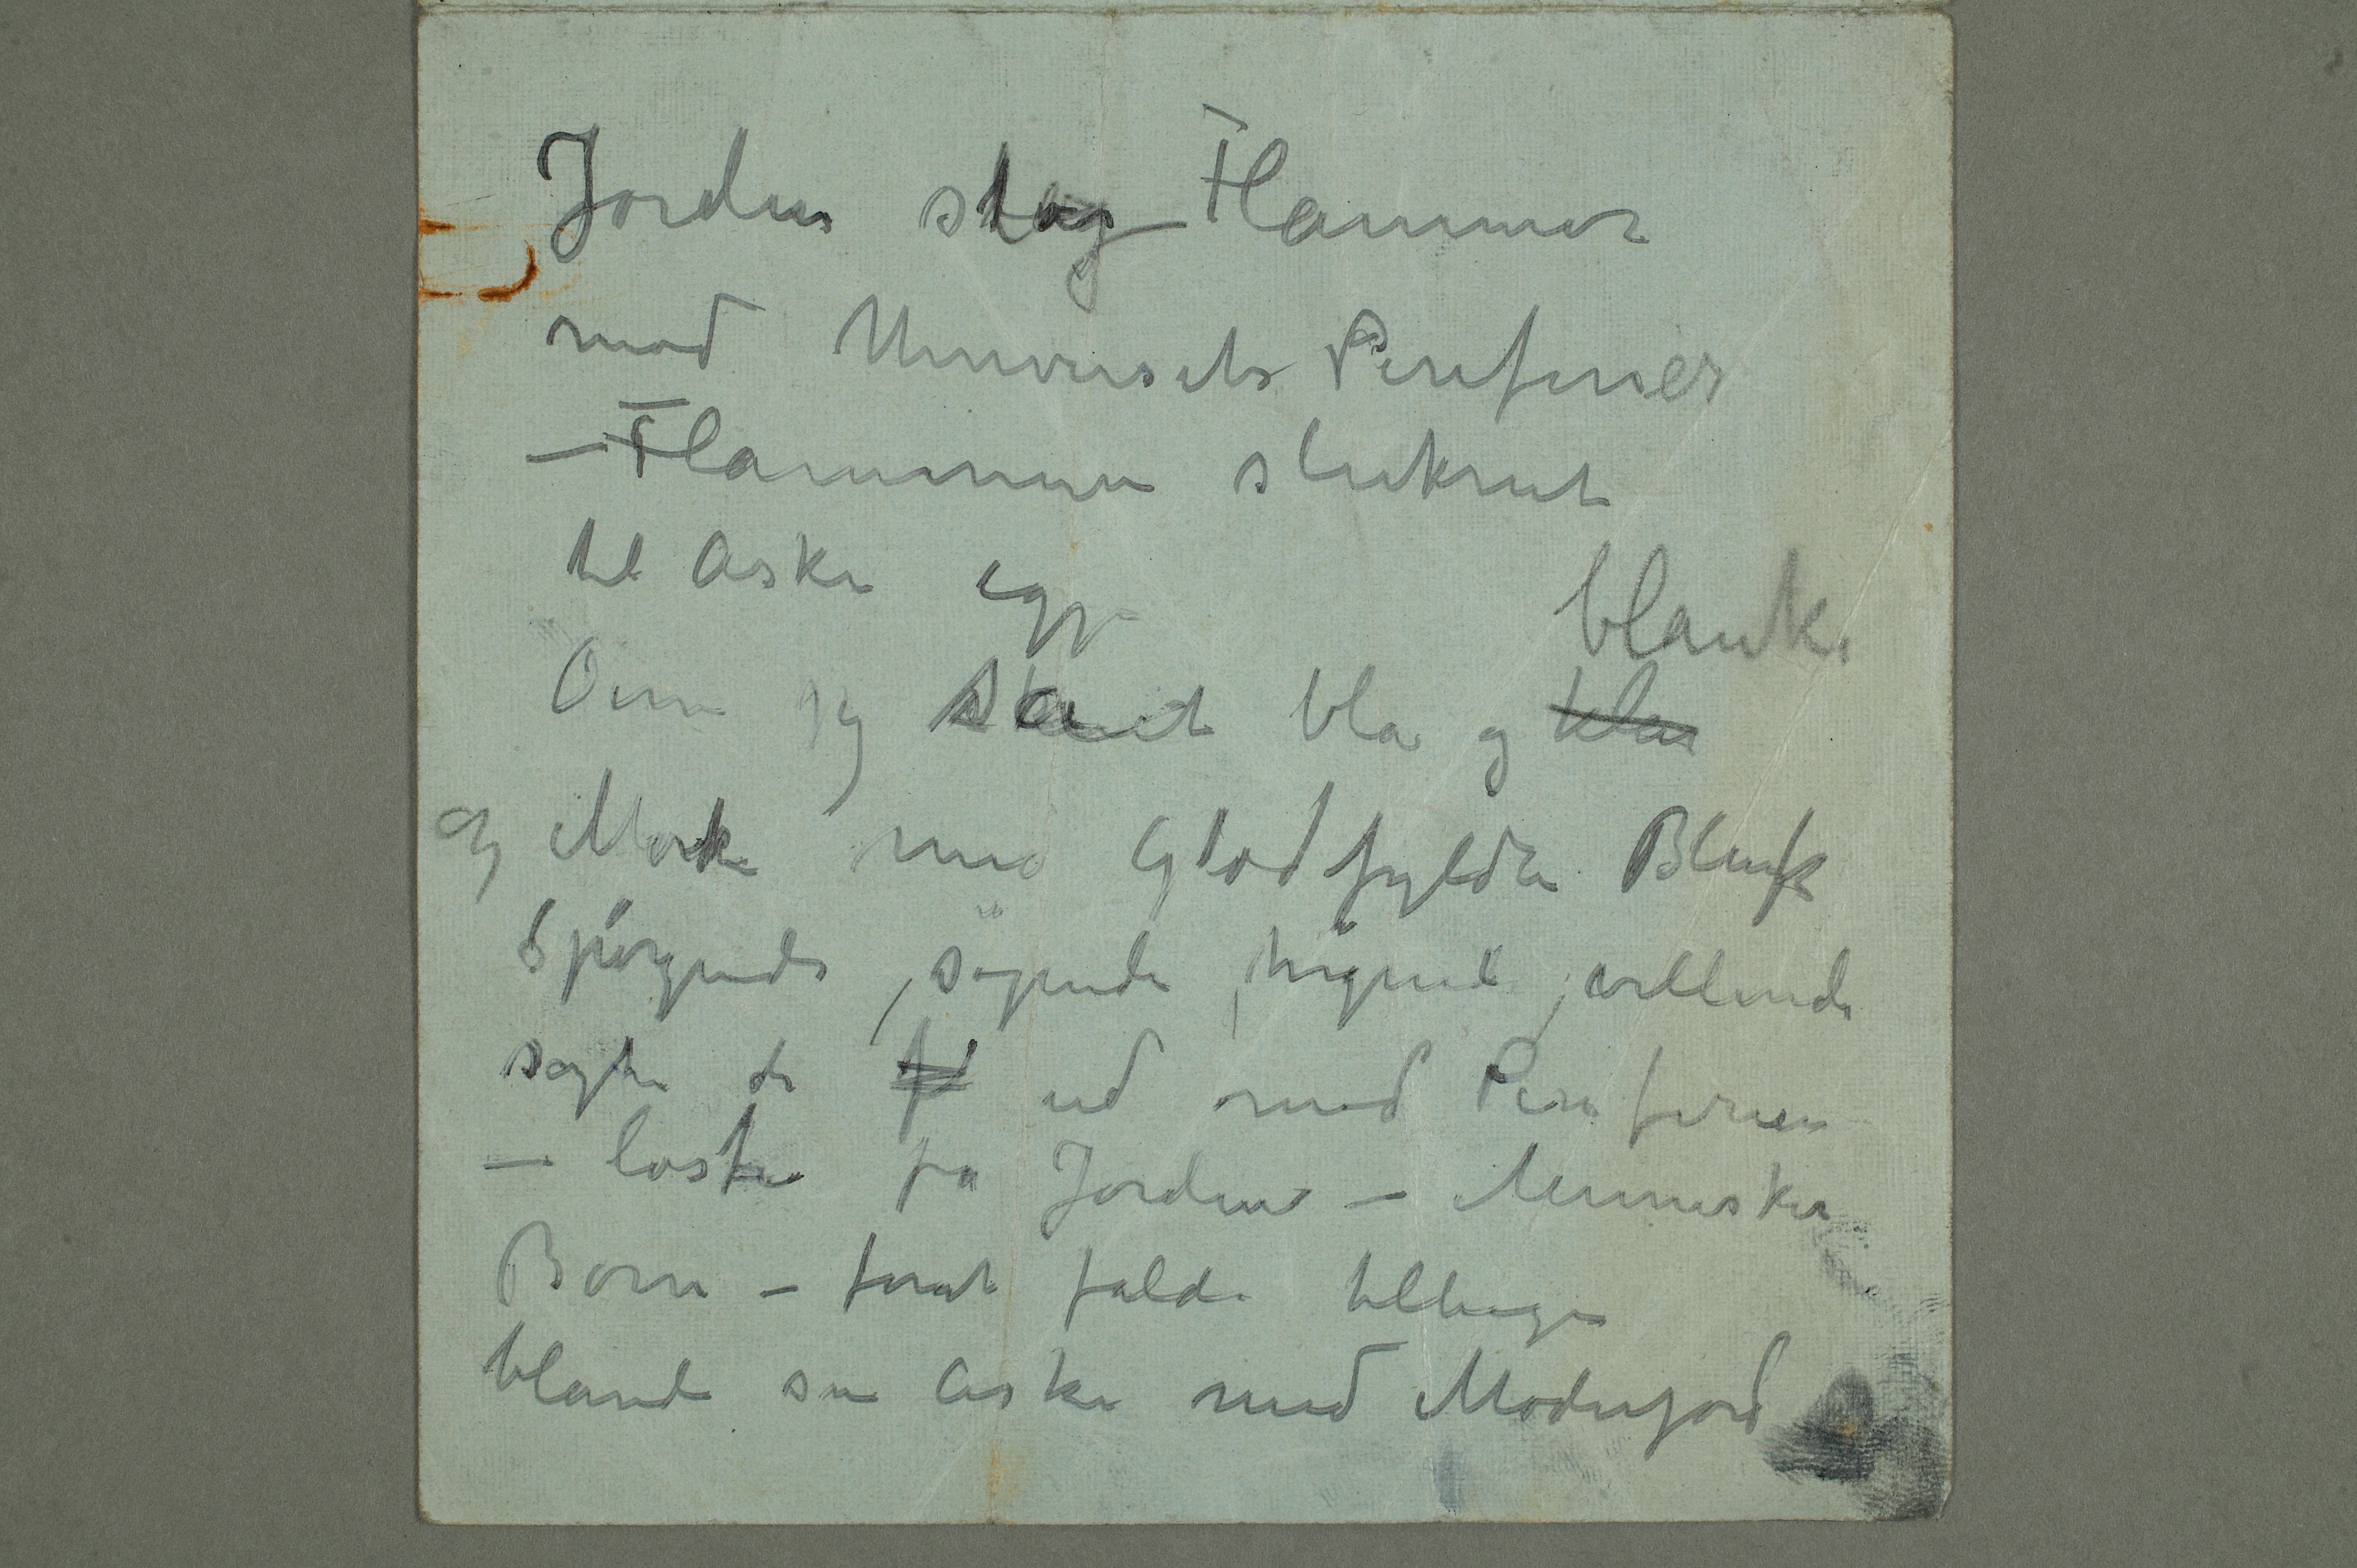 Jorden slog Flammer
mod Universets Periferier
– Flammerne slukned
til Aske igjen
blanke
Öine jeg skuet blå og klar
og Mørke med Glødfyldte Blik
Spörgende, søgende, higende, villende
søgte de ud mod Periferien
– loste fra Jorden – Mennesker
Børn – forat falde tilbage
blande sin Aske med Moderjord